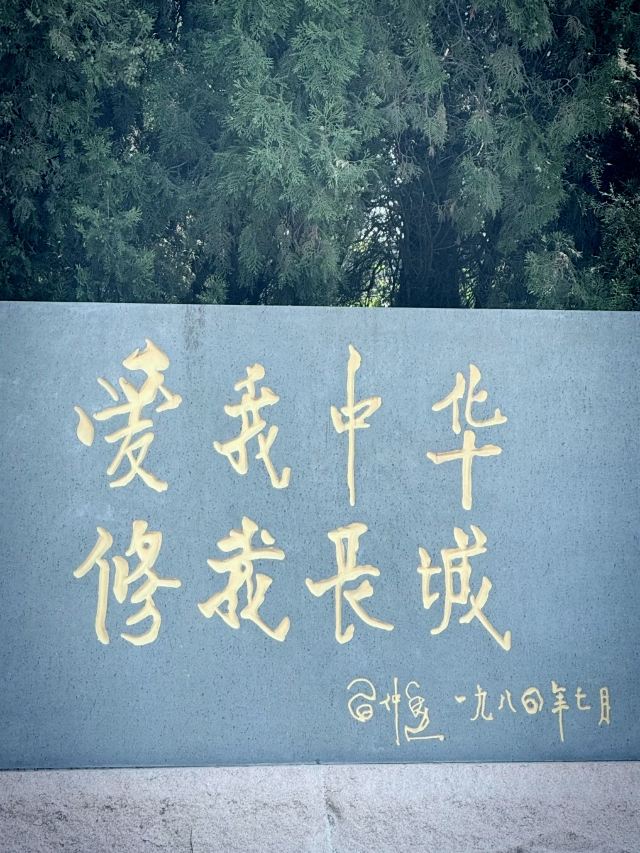 爱我中华
修我长城
习仲勋 一九八四年七月